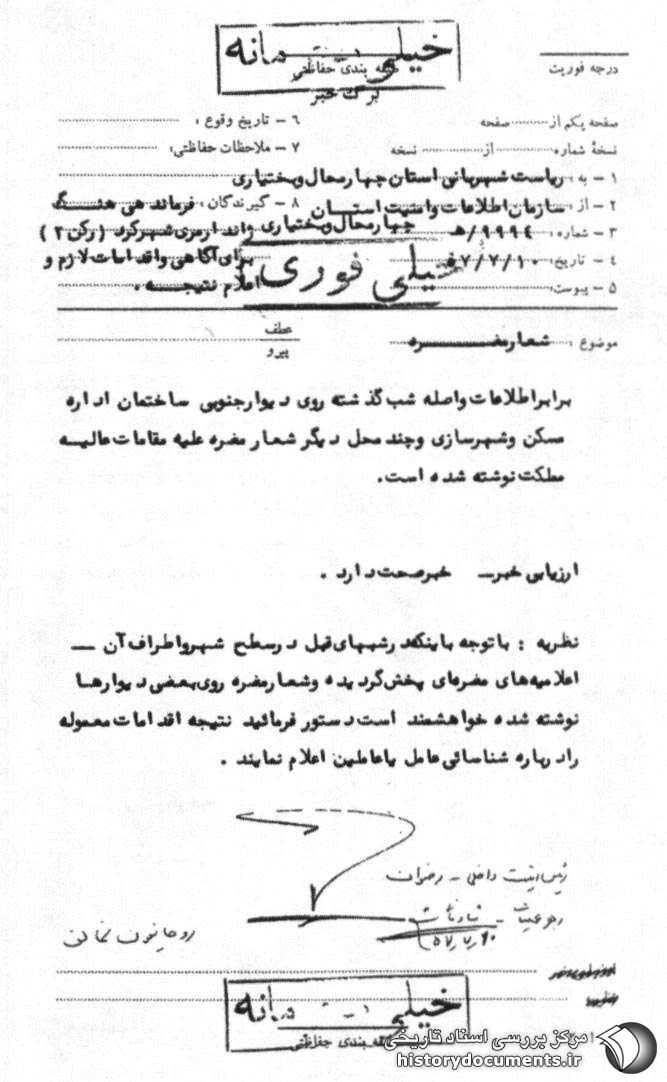 خیلی محرمانه
طبقه بندی حفاظتی
درجه فوریت
برگ خبر
صفحه یکم از صفحه
۶ - تاریخ وقوع :
نسخهٔ شماره از نسخه
۷ - ملاحظات حفاظتی:
۱ - به : ریاست شهربانی استان چهارمحال وبختیاری
۲ - از : سازمان اطلاعات وامنیت استان چهارمحال وبختیاری
۸ - گیرندگان : فرماندهی هنگ
ژاندارمری شهرکرد (رکن ۲ )
برای آگاهی واقدامات لازم و
اعلام نتیجه .
۳ - شماره : ۹۹۹۴/هـ
۴ - تاریخ : ۵۷/۷/۱۰
۵ - پیوست:
خیلی فوری
موضوع : شعارمضره
عطف
پیرو
برابراطلاعات واصله شب گذشته روی دیوارجنوبی ساختمان اداره
مسکن وشهرسازی وچند محل دیگر شعارمضره علیه مقامات عالیه
مملکت نوشته شده است.
ارزیابی خبر - خبرصحت دارد .
نظریه : باتوجه باینکه درشبهای قبل درسطح شهرواطراف آن -
اعلامیه‌های مضره‌ای پخش گردیده وشعارمضره روی بعضی دیوارها
نوشته شده خواهشمند است دستور فرمائید نتیجه اقدامات معموله
را درباره شناسائی عامل یاعاملین اعلام نمایند .
رئیس امنیت داخلی - رضوان
۵۷/۷/۱۰
خیلی محرمانه
طبقه بندی حفاظتی
مرکز بررسی اسناد تاریخی
historydocuments.ir